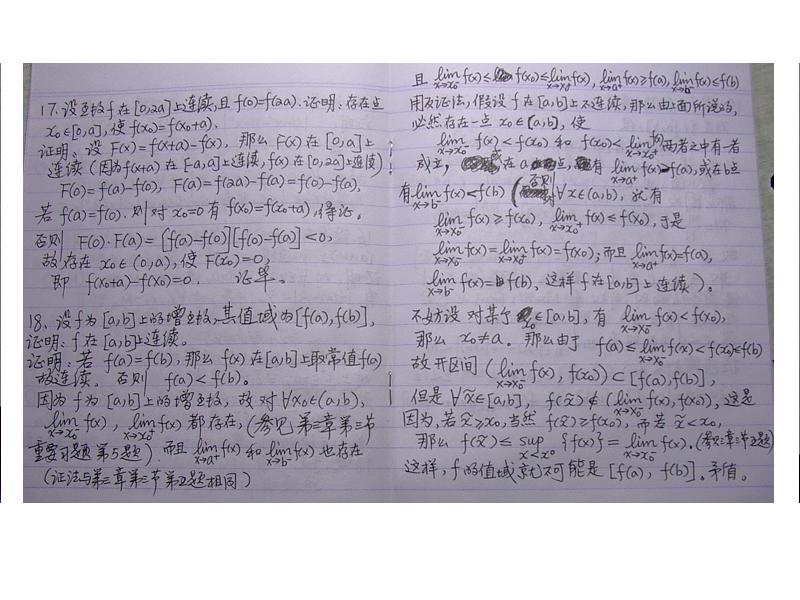 17. 设函数 f 在 [0,2a] 上连续,且 f(0)=f(2a). 证明:存在点
x₀∈[0,a], 使 f(x₀)=f(x₀+a).
证明:设 F(x)=f(x+a)-f(x), 那么 F(x) 在 [0,a] 上
连续 (因为 f(x+a) 在 [-a,a] 上连续, f(x) 在 [0,2a] 上连续)
F(0)=f(a)-f(0), F(a)=f(2a)-f(a)=f(0)-f(a),
若 f(a)=f(0). 则对 x₀=0 有 f(x₀)=f(x₀+a), 得证。
否则 F(0)·F(a)=[f(a)-f(0)][f(0)-f(a)]<0,
故存在 x₀∈(0,a), 使 F(x₀)=0,
即 f(x₀+a)-f(x₀)=0. 证毕。
18. 设 f 为 [a,b] 上的增函数,其值域为 [f(a),f(b)],
证明:f 在 [a,b] 上连续。
证明:若 f(a)=f(b), 那么 f(x) 在 [a,b] 上取常值 f(a)
故连续. 否则 f(a)<f(b)。
因为 f 为 [a,b] 上的增函数,故对 ∀x₀∈(a,b),
lim_{x→x₀⁻} f(x), lim_{x→x₀⁺} f(x) 都存在, (参见第三章第三节
重要习题第5题) 而且 lim_{x→a⁺} f(x) 和 lim_{x→b⁻} f(x) 也存在
(证法与第三章第三节第5题相同)
且 lim_{x→x₀⁻} f(x) ≤ f(x₀) ≤ lim_{x→x₀⁺} f(x), lim_{x→a⁺} f(x) ≥ f(a), lim_{x→b⁻} f(x) ≤ f(b)
用反证法,假设 f 在 [a,b] 上不连续,那么由上面所说的,
必然存在一点 x₀∈[a,b], 使
lim_{x→x₀⁻} f(x) < f(x₀) 和 f(x₀) < lim_{x→x₀⁺} f(x) 两者之中有一者
成立, 在 a 点, 有 lim_{x→a⁺} f(x) > f(a), 或在 b 点
有 lim_{x→b⁻} f(x) < f(b) (否则 ∀x∈(a,b), 就有
lim_{x→x₀⁻} f(x) ≥ f(x₀), lim_{x→x₀⁺} f(x) ≤ f(x₀), 于是
lim_{x→x₀⁻} f(x) = lim_{x→x₀⁺} f(x) = f(x₀); 而且 lim_{x→a⁺} f(x)=f(a),
lim_{x→b⁻} f(x) = f(b), 这样 f 在 [a,b] 上连续)。
不妨设对某个 x₀∈[a,b], 有 lim_{x→x₀⁻} f(x) < f(x₀),
那么 x₀≠a. 那么由于 f(a) ≤ lim_{x→x₀⁻} f(x) < f(x₀) ≤ f(b)
故开区间 (lim_{x→x₀⁻} f(x), f(x₀)) ⊂ [f(a),f(b)],
但是 ∀x̃∈[a,b], f(x̃) ∉ (lim_{x→x₀⁻} f(x), f(x₀)), 这是
因为,若 x̃≥x₀, 当然 f(x̃)≥f(x₀), 而若 x̃<x₀,
那么 f(x̃) ≤ sup_{x<x₀} {f(x)} = lim_{x→x₀⁻} f(x). (参三章三节5题)
这样, f 的值域就不可能是 [f(a), f(b)]。矛盾。